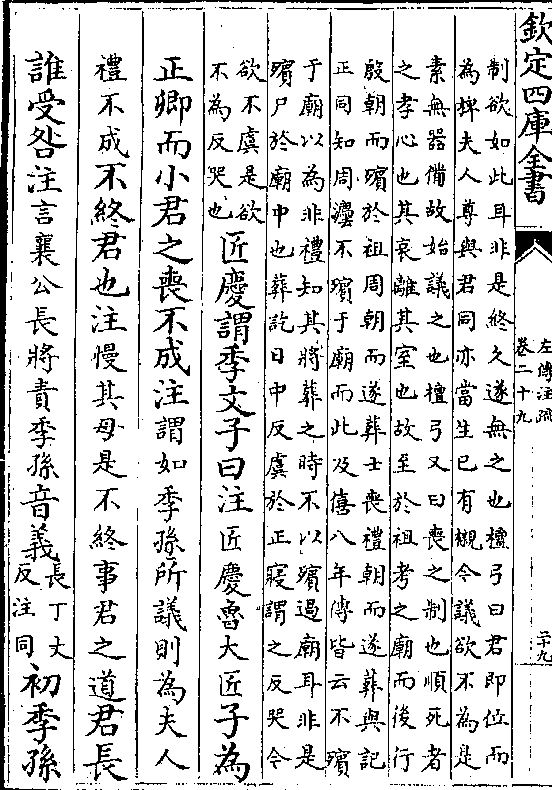 欽定四庫全書
左傳注疏
卷二十九
二十九
制欲如此耳非是終久遂無之也檀弓曰君即位而
為椑夫人尊與君同亦當生已有櫬今議欲不為是
素無器備故始議之也檀弓又曰喪之制也順死者
之孝心也其哀離其室也故至於祖考之廟而後行
殷朝而殯於祖周朝而遂葬士喪禮朝而遂葬與記
正同知周灋不殯于廟而此及僖八年傳皆云不殯
于廟以為非禮知其將葬之時不以殯過廟耳非是
殯尸於廟中也葬訖日中反虞於正寢謂之反哭今
欲不虞是欲
不為反哭也
匠慶謂季文子曰注匠慶魯大匠子為
正卿而小君之喪不成注謂如季孫所議則為夫人
禮不成不終君也注慢其母是不終事君之道君長
誰受咎注言襄公長將責季孫音義長丁丈
反注同
初季孫